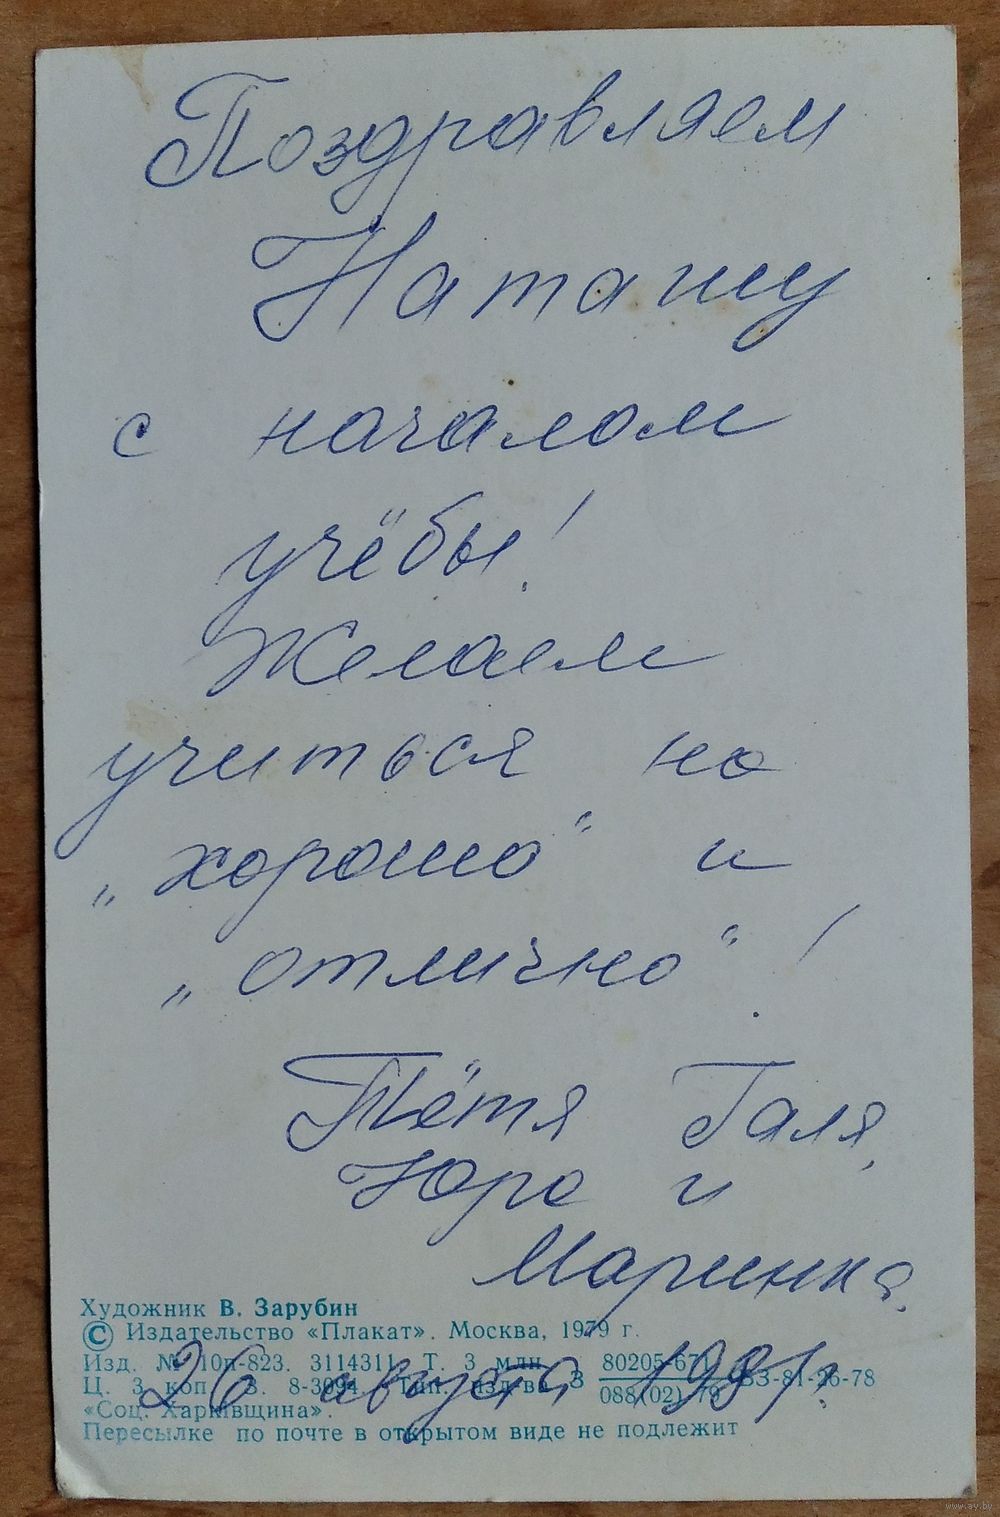 Поздравляем
Наташу
с началом
учёбы!
Желаем
учиться на
„хорошо" и
„отлично"!
Тётя Галя,
Юра и
Маринка.
26 августа 1981 г.
Художник В. Зарубин
© Издательство «Плакат». Москва, 1979 г.
Изд. № 10п-823. 3114311. Т. 3 млн.
Ц. 3 коп. З. 8-3094. Тип. изд-ва
«Соц. Харкiвщина».
80205-671
088(02)-79
БЗ-81-26-78
Пересылке по почте в открытом виде не подлежит
www.ay.by